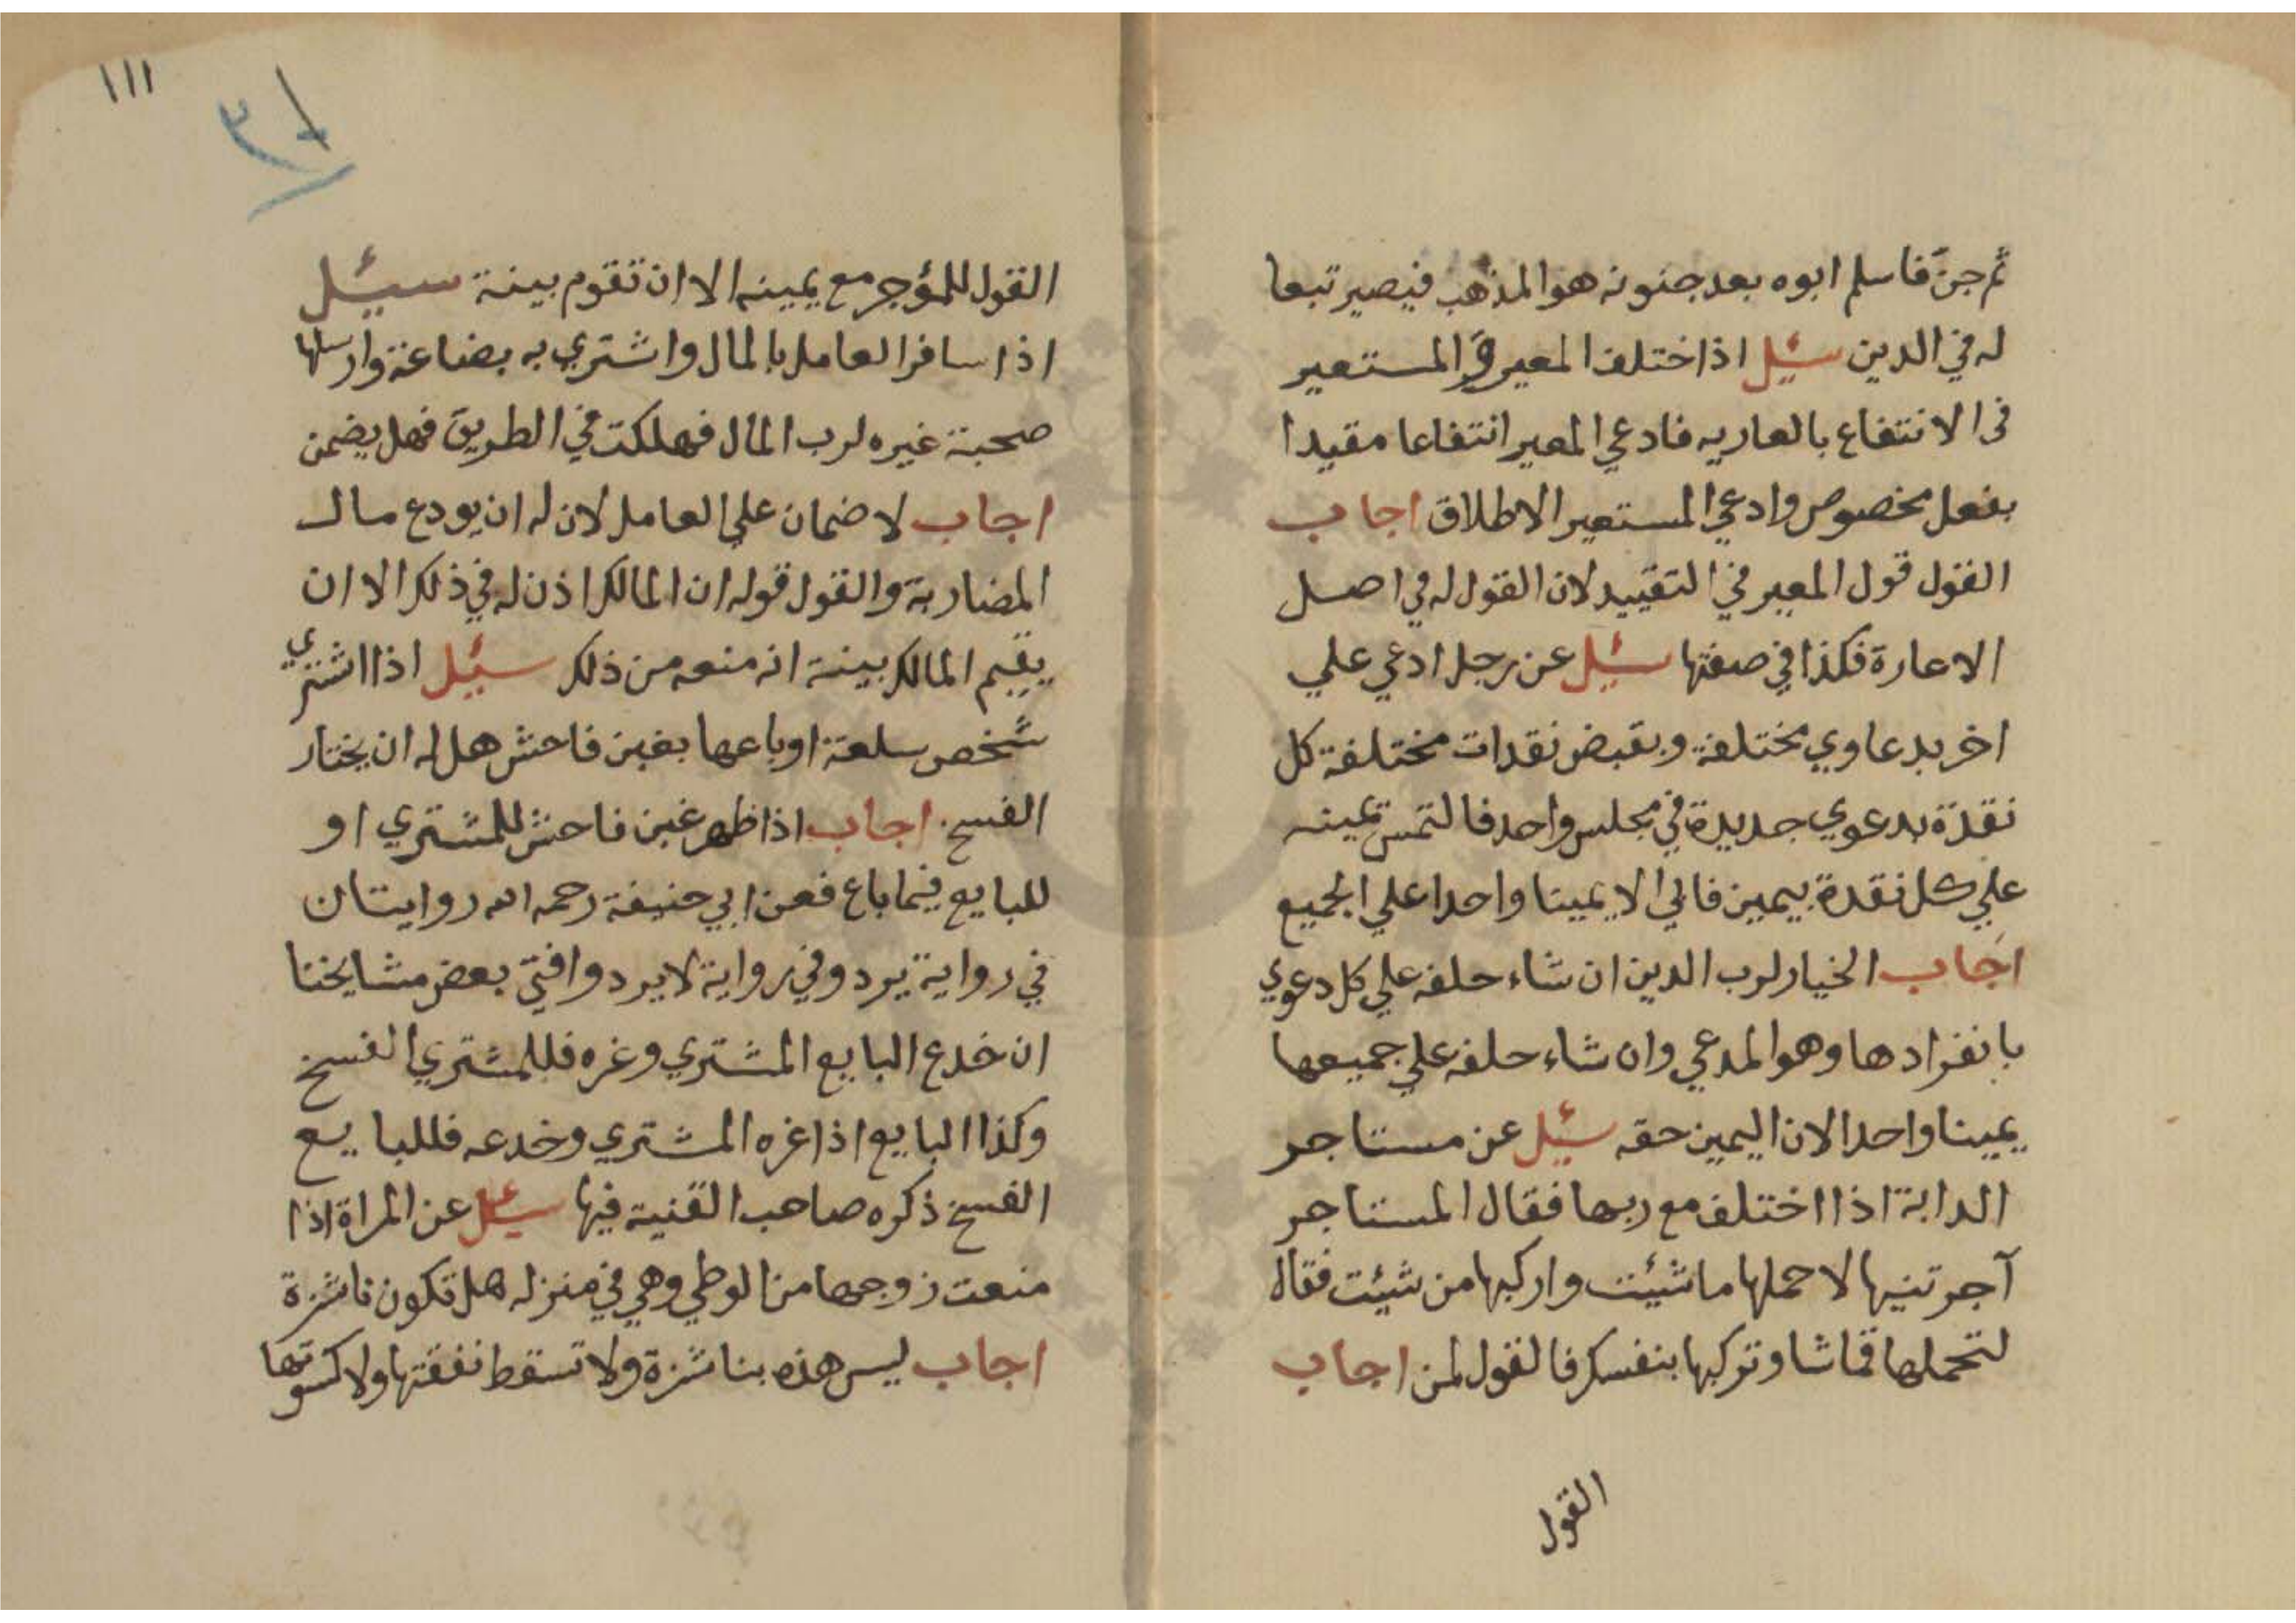 ثم جنّ فاسلم ابوه بعد جنونه هو المذهب فيصير تبعا
له في الدين سئيل اذا اختلف المعير والمستعير
في الانتفاع بالعاريه فادعي المعير انتفاعا مقيدا
بفعل مخصوص وادعي المستعير الاطلاق اجاب
القول قول المعير في التقييد لان القول له في اصل
الاعارة فكذا في صفتها سئيل عن رجل ادعي علي
اخر بدعاوي مختلفة وبقبض نقدات مختلفة كل
نقدة بدعوي جديدة في مجلس واحد فالتمس يمينه
علي كل نقدة بيمين فابي الا يمينا واحدا علي الجميع
اجاب الخيار لرب الدين ان شاء حلفه علي كل دعوي
بانفرادها وهو المدعي وان شاء حلفه علي جميعها
يمينا واحدا لان اليمين حقه سئيل عن مستاجر
الدابة اذا اختلف مع ربها فقال المستاجر
آجرتنيها لاحملها ما شئيت واركبها من شئيت فقال
لتحملها قماشا وتركبها بنفسك فالقول لمن اجاب
القول
١١١
القول للمؤجر مع يمينه الا ان تقوم بينة سيئيل
اذا سافر العامل بالمال واشتري به بضاعة وارسلها
صحبة غيره لرب المال فهلكت في الطريق فهل يضمن
اجاب لا ضمان علي العامل لان له ان يودع مال
المضاربة والقول قوله ان المالك اذن له في ذلك الا ان
يقيم المالك بينة انه منعه من ذلك سئيل اذا اشتري
شخص سلعة او باعها بغبن فاحش هل له ان يختار
الفسخ. اجاب اذا ظهر غبن فاحش للمشتري او
للبايع فيما باع فعن ابي حنيفة رحمه الله روايتان
في رواية يرد وفي رواية لا يرد وافتي بعض مشايخنا
ان خدع البايع المشتري وغره فللمشتري الفسخ
وكذا البايع اذا غره المشتري وخدعه فللبايع
الفسخ ذكره صاحب القنية فيها سئيل عن المراة اذا
منعت زوجها من الوطي وهي في منزله هل تكون ناشزة
اجاب ليس هذه بناشزة ولا تسقط نفقتها ولا كسوتها